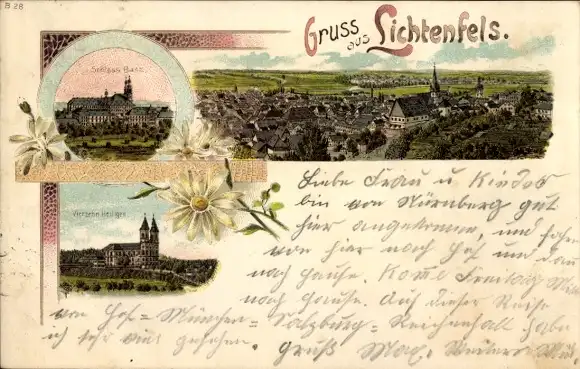 B 28
Gruss aus Lichtenfels.
Schloss Banz
Vierzehn Heiligen
Liebe Frau u. Kinder
bin von Nürnberg gut
hier angekommen, und fahre
von hier nach Hof und dann
nach Hause. Kome Freitag
nach Hause. Auf dieser Reise
von Hof = München = Salzburg = Reichenhall habe
ich sehr viel gesehen. Gruß Max.